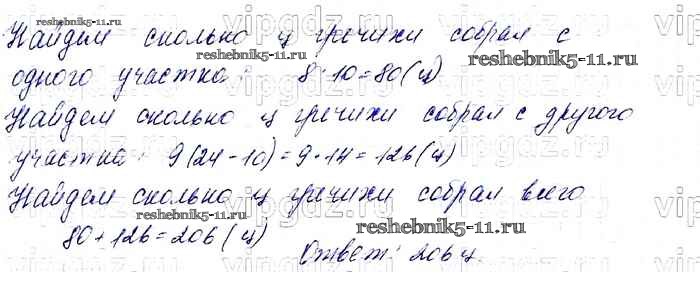 Найдем сколько ц гречихи собрал с
одного участка: 8·10=80(ц)
Найдем сколько ц гречихи собрал с другого
участка: 9(24-10)=9·14=126(ц)
Найдем сколько ц гречихи собрал всего
80+126=206(ц)
Ответ: 206 ц.
reshebnik5-11.ru
reshebnik5-11.ru
reshebnik5-11.ru
reshebnik5-11.ru
reshebnik5-11.ru
vipgdz.ru
vipgdz.ru
vipgdz.ru